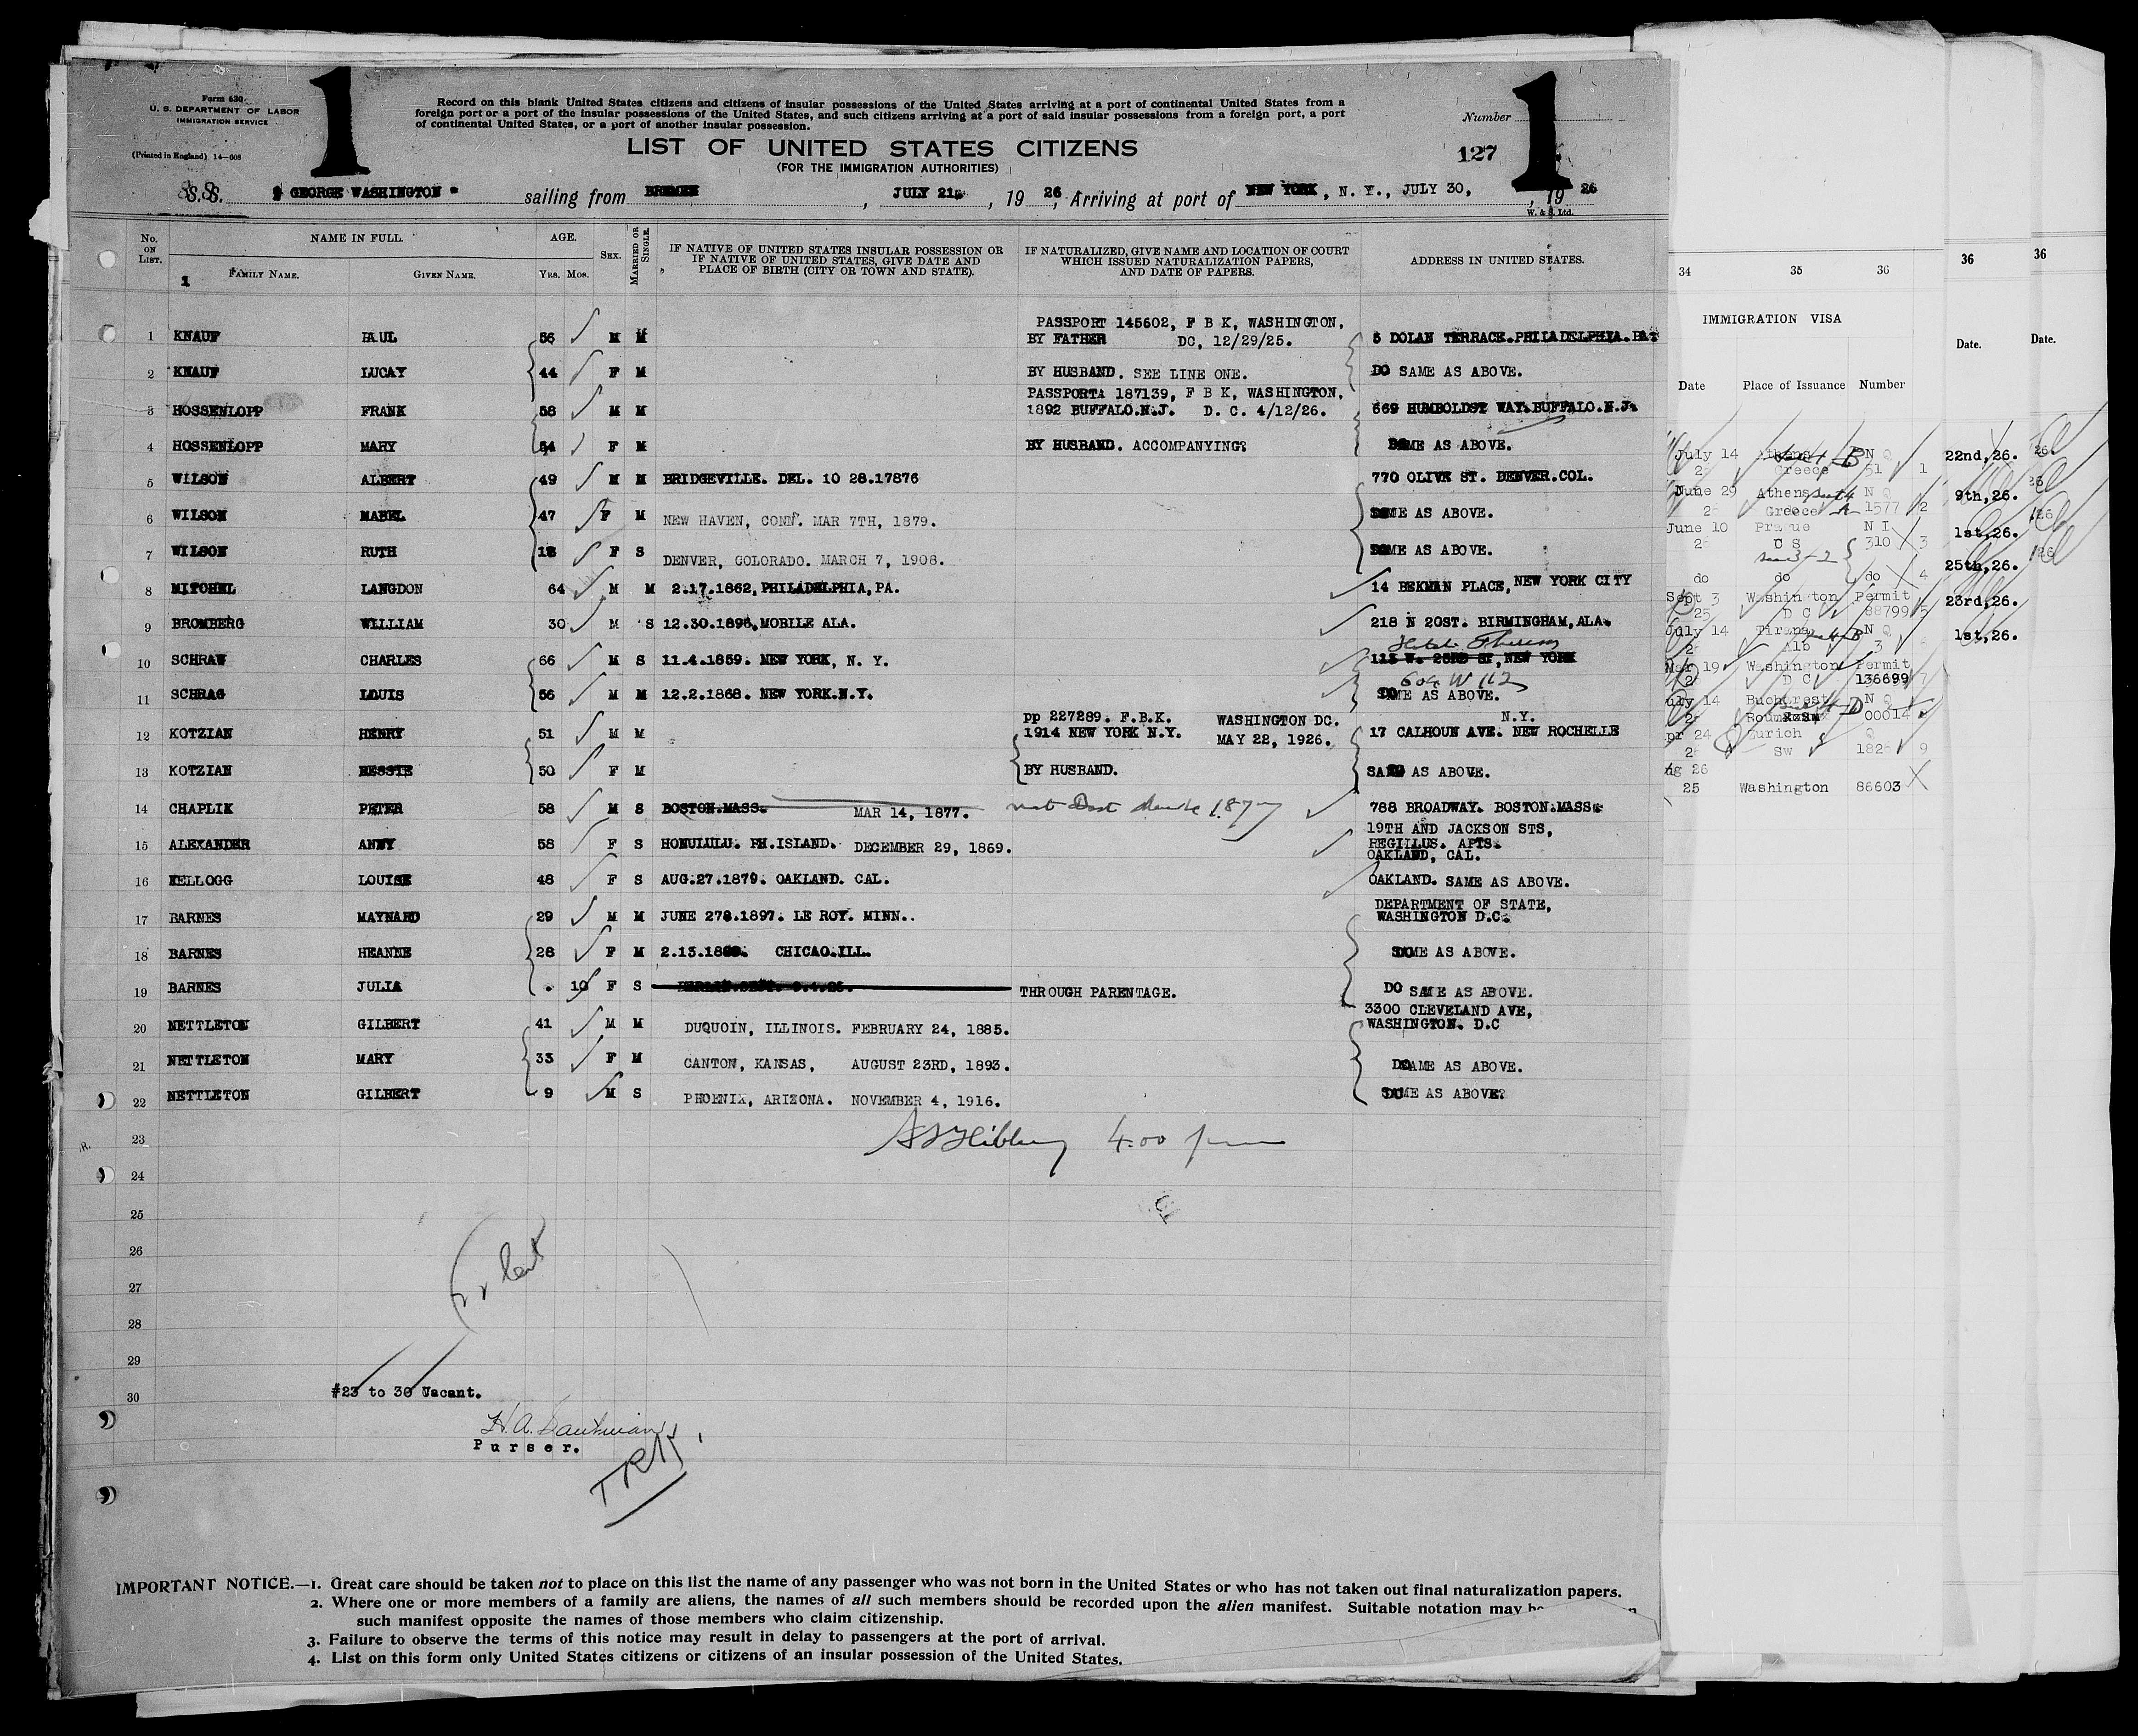 Form 630
U. S. DEPARTMENT OF LABOR
IMMIGRATION SERVICE
(Printed in England) 14—608
1
Record on this blank United States citizens and citizens of insular possessions of the United States arriving at a port of continental United States from a
foreign port or a port of the insular possessions of the United States, and such citizens arriving at a port of said insular possessions from a foreign port, a port
of continental United States, or a port of another insular possession.
Number
1
LIST OF UNITED STATES CITIZENS
127
(FOR THE IMMIGRATION AUTHORITIES)
S.S. " GEORGE WASHINGTON " sailing from BREMEN, JULY 21, 1926, Arriving at port of NEW YORK, N. Y., JULY 30, 1926
W. & S. Ltd.
No. ON LIST. NAME IN FULL. AGE. SEX. MARRIED OR SINGLE. IF NATIVE OF UNITED STATES INSULAR POSSESSION OR IF NATIVE OF UNITED STATES, GIVE DATE AND PLACE OF BIRTH (CITY OR TOWN AND STATE). IF NATURALIZED, GIVE NAME AND LOCATION OF COURT WHICH ISSUED NATURALIZATION PAPERS, AND DATE OF PAPERS. ADDRESS IN UNITED STATES.
1 FAMILY NAME. GIVEN NAME. YRS. MOS.
PASSPORT 145602, F B K, WASHINGTON,
1 KNAUF PAUL 56 M M BY FATHER DC, 12/29/25. 5 DOLAN TERRACE.PHILADELPHIA.PA
2 KNAUF LUCAY 44 F M BY HUSBAND. SEE LINE ONE. DO SAME AS ABOVE.
PASSPORT: 187139, F B K, WASHINGTON,
3 HOSSENLOPP FRANK 58 M M 1892 BUFFALO.N.J. D. C. 4/12/26. 669 HUMBOLDST WAY.BUFFALO.N.J.
4 HOSSENLOPP MARY 54 F M BY HUSBAND. ACCOMPANYING? SAME AS ABOVE.
5 WILSON ALBERT 49 M M BRIDGEVILLE. DEL. 10 28.17876 770 OLIVE ST. DENVER.COL.
6 WILSON MABEL 47 F M NEW HAVEN, CONN. MAR 7TH, 1879. SAME AS ABOVE.
7 WILSON RUTH 18 F S DENVER, COLORADO. MARCH 7, 1908. SAME AS ABOVE.
8 MITCHEL LANGDON 64 M M 2.17.1862, PHILADELPHIA, PA. 14 BEKMAN PLACE, NEW YORK CITY
9 BROMBERG WILLIAM 30 M S 12.30.1896, MOBILE ALA. 218 N 20ST. BIRMINGHAM, ALA.
10 SCHRAW CHARLES 66 M S 11.4.1859. NEW YORK, N. Y. 113 W. 23RD ST, NEW YORK
604 W 112
11 SCHRAG LOUIS 56 M M 12.2.1868. NEW YORK.N.Y. SAME AS ABOVE.
pp 227289. F.B.K. WASHINGTON DC. N.Y.
12 KOTZIAN HENRY 51 M M 1914 NEW YORK N.Y. MAY 22, 1926. 17 CALHOUN AVE. NEW ROCHELLE
13 KOTZIAN BESSIE 50 F M BY HUSBAND. SAME AS ABOVE.
14 CHAPLIK PETER 58 M S BOSTON.MASS. MAR 14, 1877. 1877 788 BROADWAY. BOSTON.MASS.
19TH AND JACKSON STS,
15 ALEXANDER ANNY 58 F S HONULULU. PH.ISLAND. DECEMBER 29, 1869. REGILLUS. APTS.
OAKLAND, CAL.
16 KELLOGG LOUISE 48 F S AUG.27.1879. OAKLAND. CAL. OAKLAND. SAME AS ABOVE.
DEPARTMENT OF STATE,
17 BARNES MAYNARD 29 M M JUNE 27.1897. LE ROY. MINN.. WASHINGTON D.C.
18 BARNES HEANNE 28 F M 2.13. CHICAO.ILL. SAME AS ABOVE.
19 BARNES JULIA 10 F S THROUGH PARENTAGE. DO SAME AS ABOVE.
3300 CLEVELAND AVE,
20 NETTLETON GILBERT 41 M M DUQUOIN, ILLINOIS. FEBRUARY 24, 1885. WASHINGTON. D.C
21 NETTLETON MARY 33 F M CANTON, KANSAS, AUGUST 23RD, 1893. SAME AS ABOVE.
22 NETTLETON GILBERT 9 M S PHOENIX, ARIZONA. NOVEMBER 4, 1916. SAME AS ABOVE?
23 4.00 pm
24
25
26
27
28
29
30
#23 to 30 Vacant.
Purser.
IMPORTANT NOTICE.—1. Great care should be taken not to place on this list the name of any passenger who was not born in the United States or who has not taken out final naturalization papers.
2. Where one or more members of a family are aliens, the names of all such members should be recorded upon the alien manifest. Suitable notation may
such manifest opposite the names of those members who claim citizenship.
3. Failure to observe the terms of this notice may result in delay to passengers at the port of arrival.
4. List on this form only United States citizens or citizens of an insular possession of the United States.
34 35 36
IMMIGRATION VISA
Date Place of Issuance Number
July 14 Athens N Q
Greece 51 1
June 29 Athens N Q
Greece 1577 2
June 10 Prague N I
C S 310 3
do do do 4
Sept 3 Washington Permit
25 D C 88799 5
July 14 Tirana N Q
Alb 3
Mar 19 Washington Permit
D C 136699 7
July 14 Bucharest N Q
Roum 00014
Apr 24 Zurich Q
Sw 182 9
Aug 26
25 Washington 86603
36
Date.
22nd,26.
9th,26.
1st,26.
25th,26.
23rd,26.
1st,26.
36
Date.
26
26
26
26